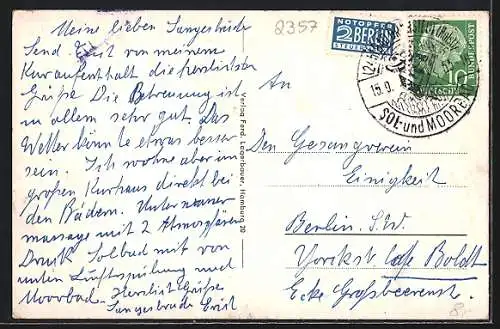 Meine lieben Sangesbrüder
Send Euch von meinem
Kuraufenthalt die herzlichsten
Grüße Die Betreuung ist
in allem sehr gut. Das
Wetter könnte etwas besser
sein. Ich wohne aber im
großen Kurhaus direkt bei
den Bädern. Unterwasser
massage mit 2 Atmosphären
Druck Solbad mit von
unten Luftspülung und
Moorbad. Herzliche Grüße
Sangesbruder Erich
Verlag Ferd. Lagerbauer, Hamburg 20
2357
NOTOPFER
2 BERLIN
STEUERMARKE
SOL- und MOOR
10
BUNDESPOST
An
Den Gesangverein
Einigkeit
Berlin. S.W.
Yorckstr. Cafe Boldt
Ecke Großbeerenstr.